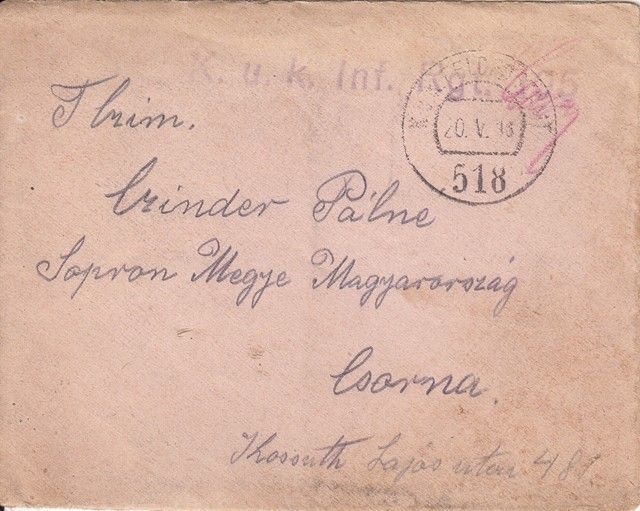 K. u. k. Inf. Rgt.
20. V. 18
518
Czinder Pálne
Sopron Megye Magyarország
Csorna.
Kossuth Lajos utca